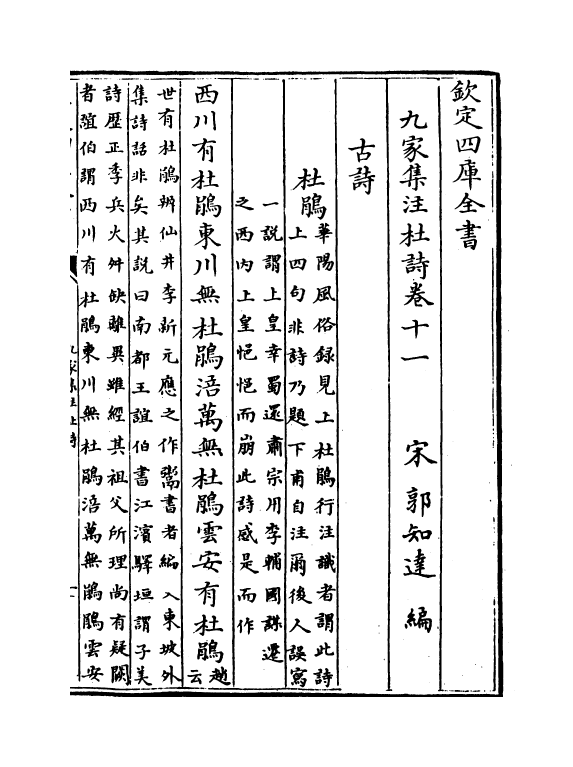 欽定四庫全書
九家集注杜詩卷十一
宋 郭知達 編
古詩
杜鵑
華陽風俗録見上杜鵑行注識者謂此詩
上四句非詩乃題下甫自注爾後人誤寫
一説謂上皇幸蜀還肅宗用李輔國謀遷
之西内上皇悒悒而崩此詩感是而作
西川有杜鵑東川無杜鵑涪萬無杜鵑雲安有杜鵑
趙
云
世有杜鵑辨仙井李新元應之作鬻書者編入東坡外
集詩話非矣其説曰南都王誼伯書江濱驛垣謂子美
詩歴正季兵火舛缺離異雖經其祖父所理尚有疑闕
者誼伯謂西川有杜鵑東川無杜鵑涪萬無鵑鵑雲安